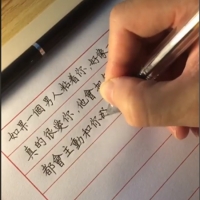 如果一個男人粘着你,好
真的很愛你,他會
都會主動和你